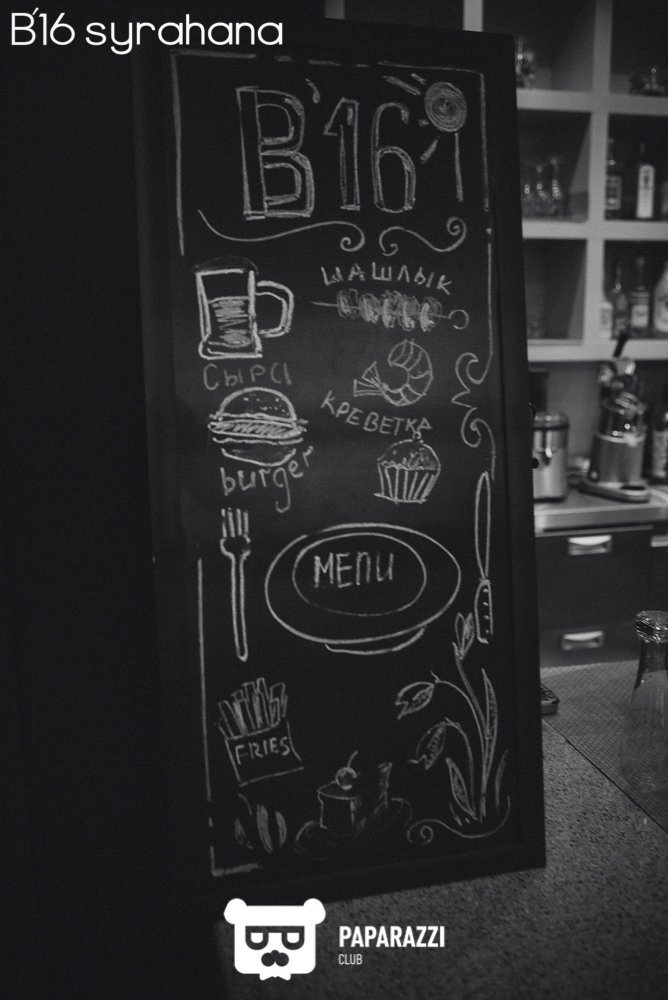 B'16 syrahana
B'16
ШАШЛЫК
СЫРА
КРЕВЕТКА
burger
МЕПИ
FRIES
PAPARAZZI
CLUB